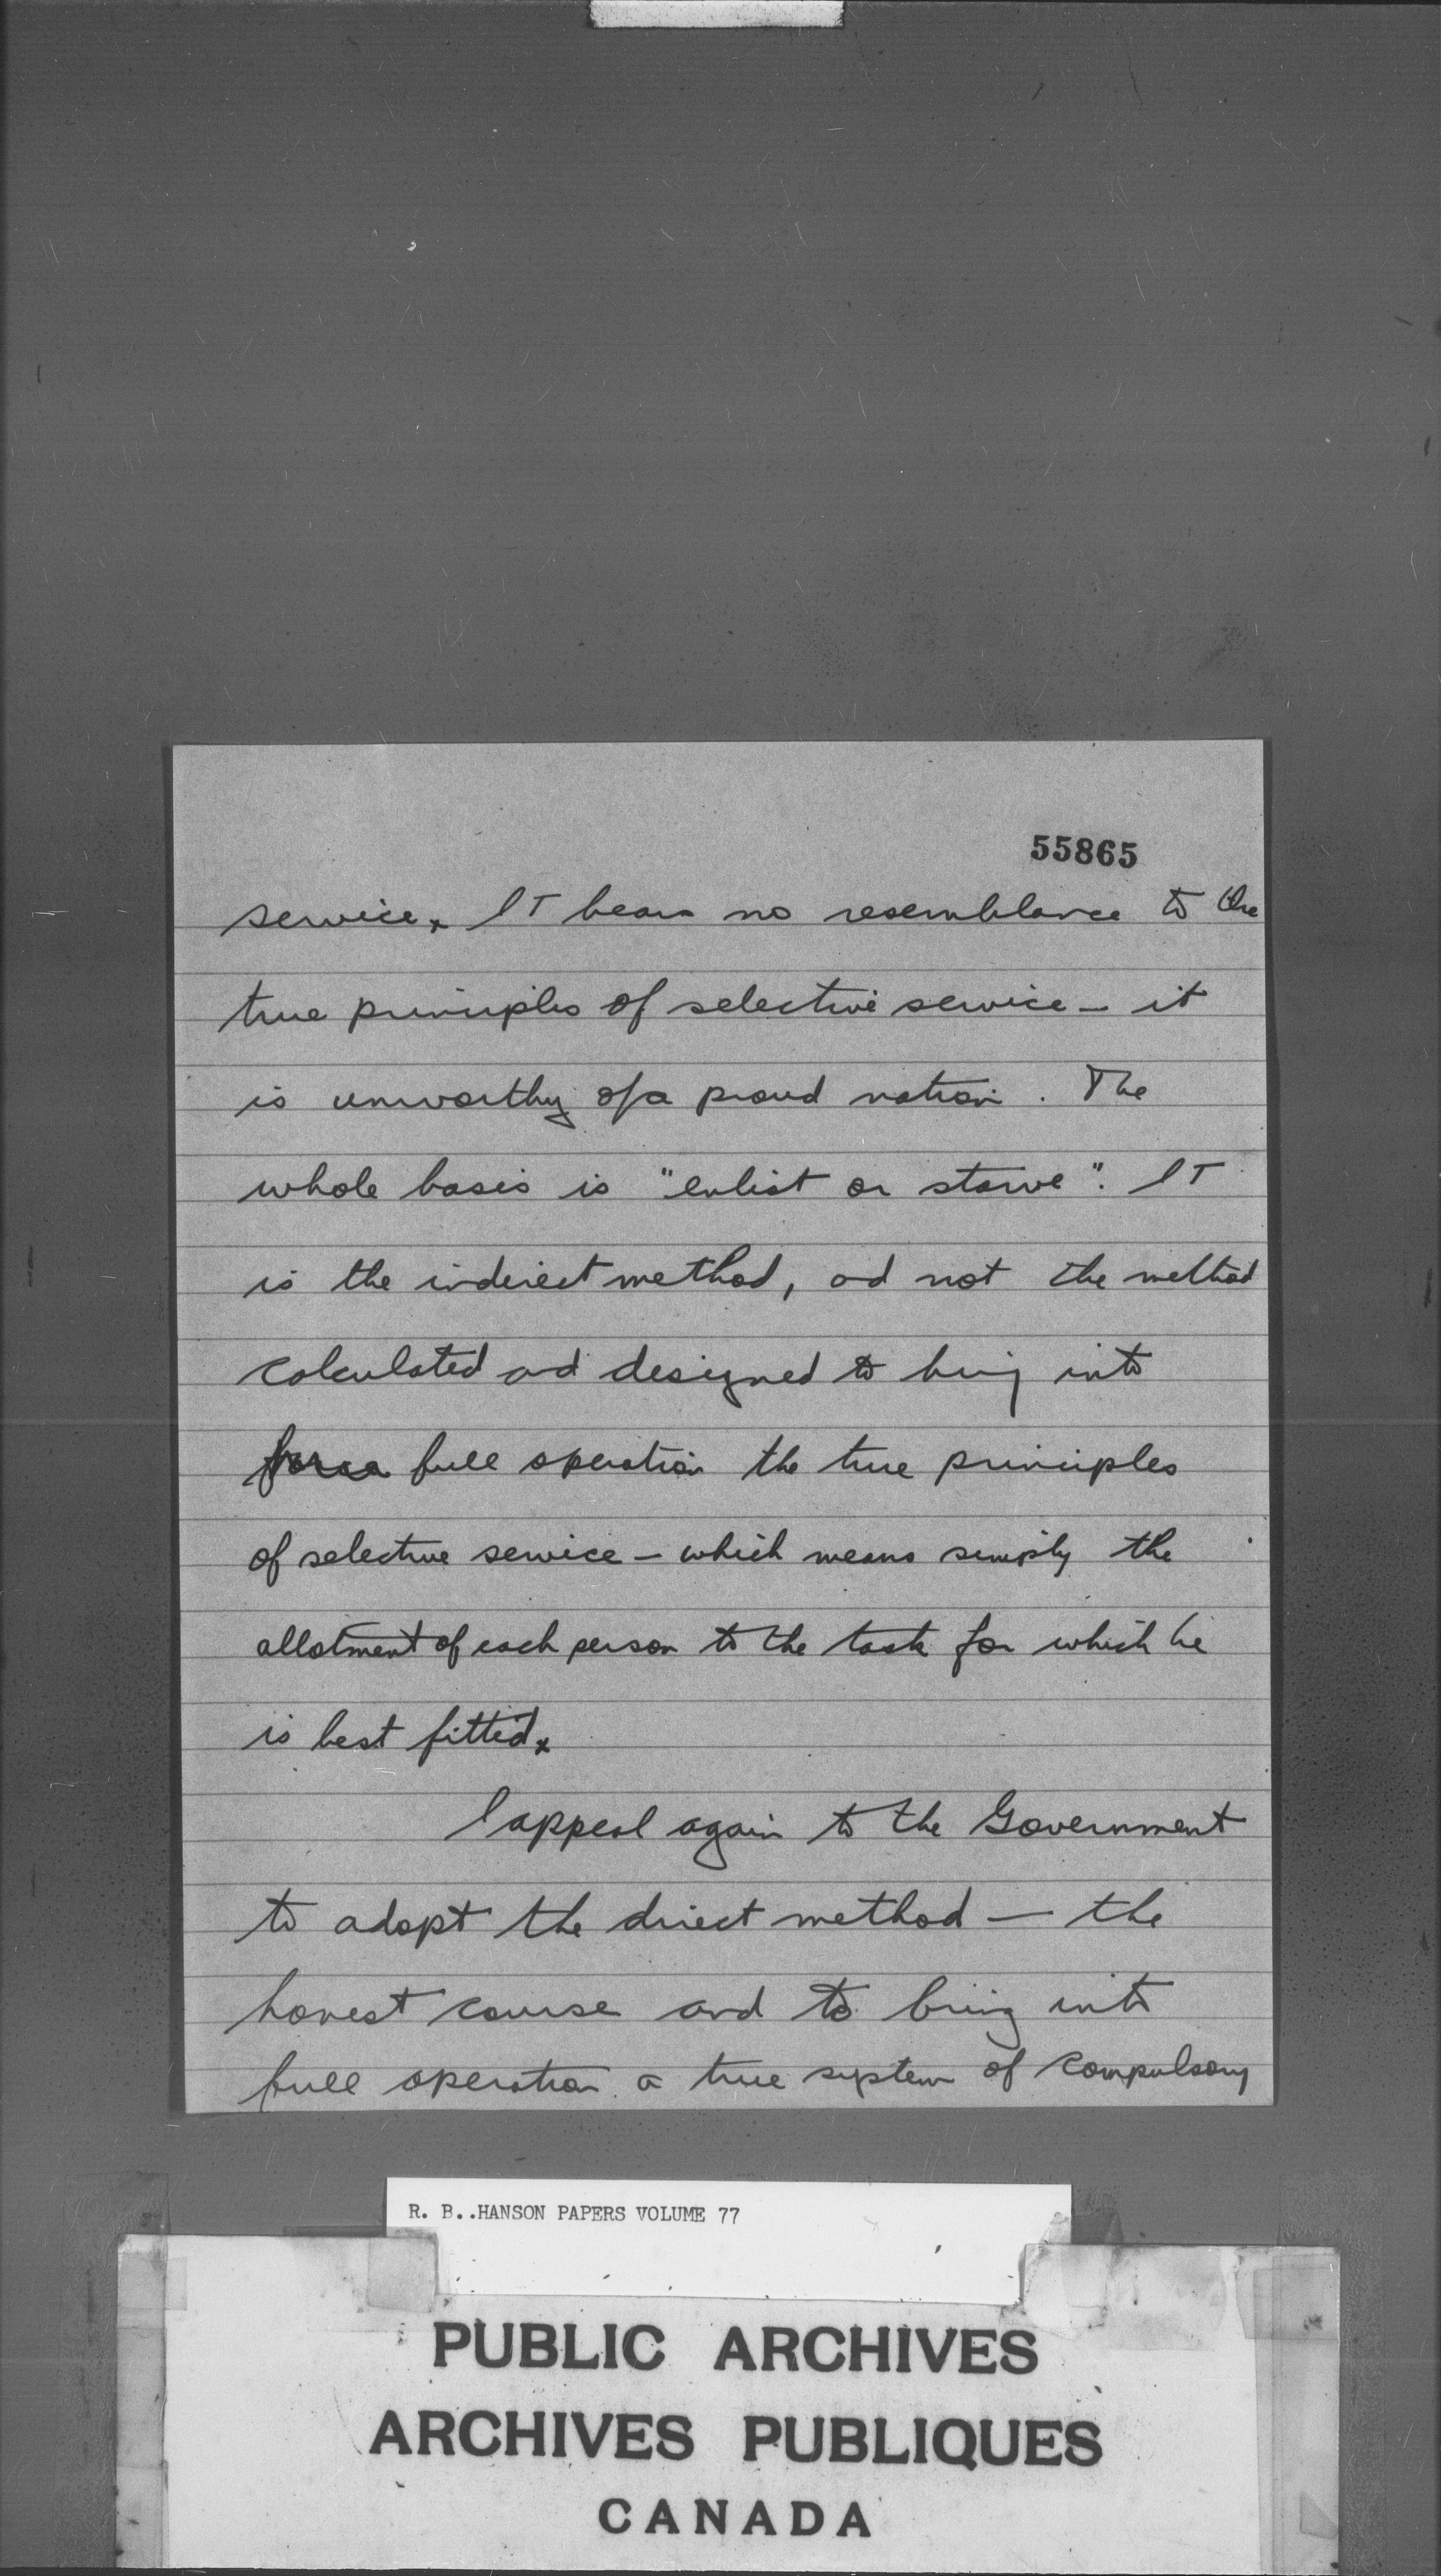 55865
service x It bears no resemblance to the
true principles of selective service - it
is unworthy of a proud nation. The
whole basis is "enlist or starve". It
is the indirect method, and not the method
calculated and designed to bring into
force full operation the true principles
of selective service - which means simply the
allotment of each person to the task for which he
is best fitted x
I appeal again to the Government
to adopt the direct method — the
honest course and to bring into
full operation a true system of compulsory
R. B..HANSON PAPERS VOLUME 77
PUBLIC ARCHIVES
ARCHIVES PUBLIQUES
CANADA